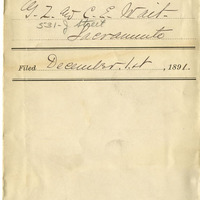 G. Z. & C. E. Wait.
531 - J Street
Sacramento
Filed December 1st, 1891.